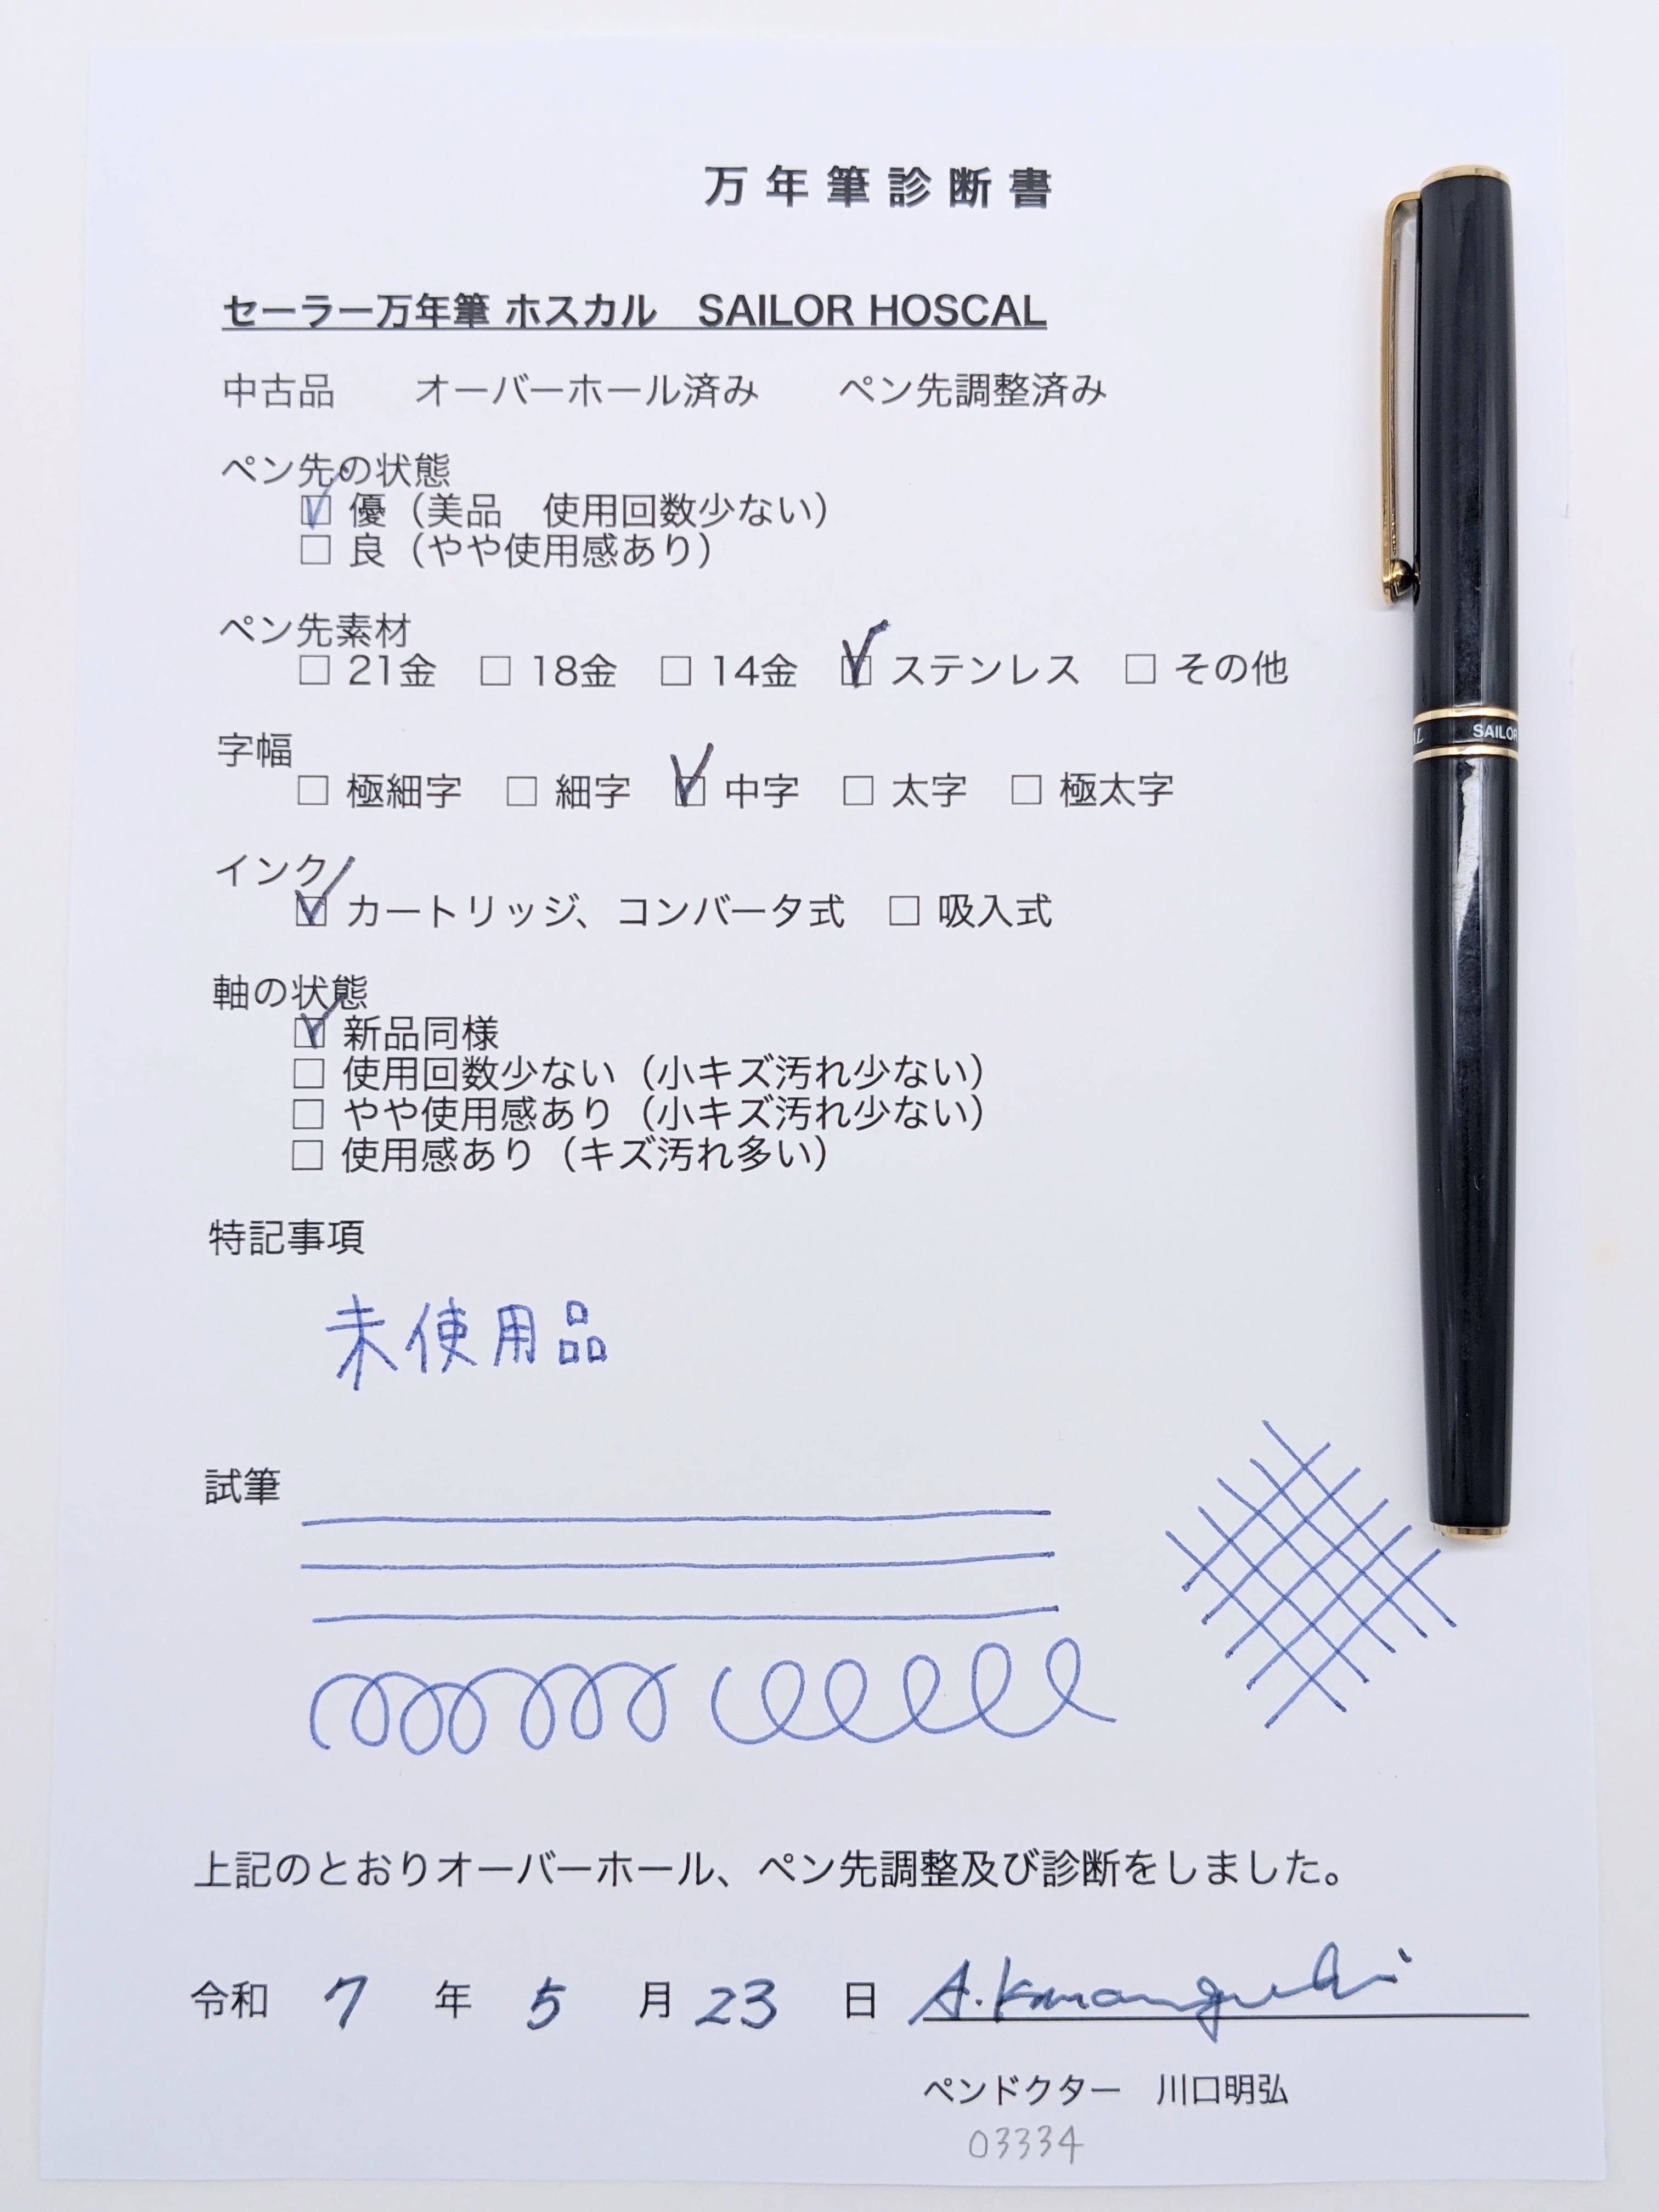 万年筆診断書
セーラー万年筆 ホスカル　SAILOR HOSCAL
中古品　　オーバーホール済み　　ペン先調整済み
ペン先の状態
☑ 優（美品　使用回数少ない）
□ 良（やや使用感あり）
ペン先素材
□ 21金　□ 18金　□ 14金　☑ ステンレス　□ その他
字幅
□ 極細字　□ 細字　☑ 中字　□ 太字　□ 極太字
インク
☑ カートリッジ、コンバータ式　□ 吸入式
軸の状態
☑ 新品同様
□ 使用回数少ない（小キズ汚れ少ない）
□ やや使用感あり（小キズ汚れ少ない）
□ 使用感あり（キズ汚れ多い）
特記事項
未使用品
試筆
上記のとおりオーバーホール、ペン先調整及び診断をしました。
令和 7 年 5 月 23 日 A.Kawaguchi
ペンドクター　川口明弘
03334
SAILOR